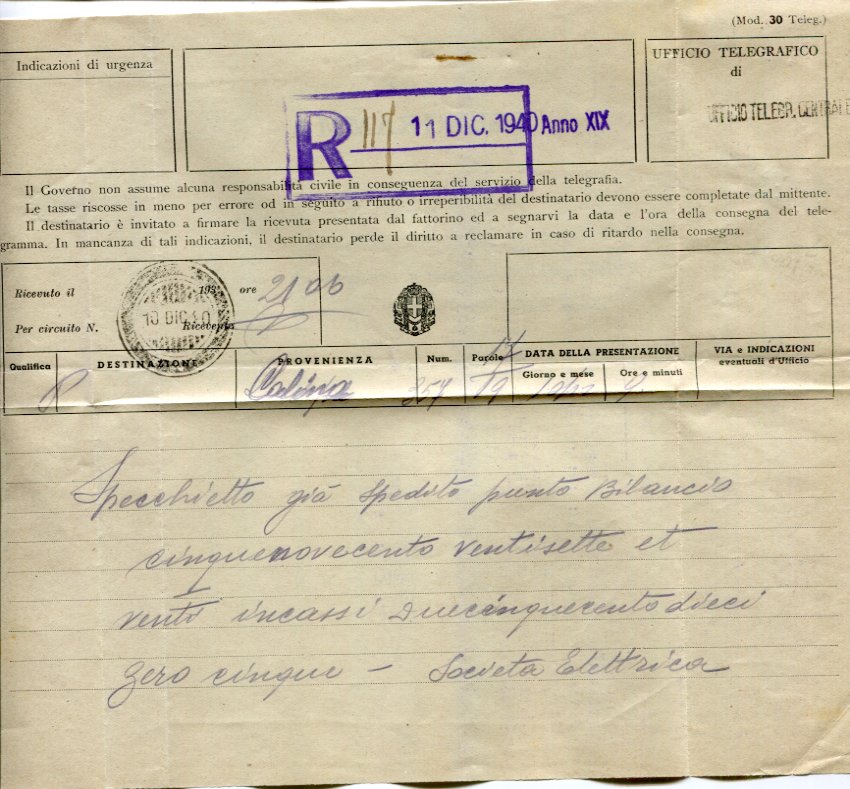 (Mod. 30 Teleg.)
Indicazioni di urgenza
UFFICIO TELEGRAFICO
di
UFFICIO TELEGR. CENTRALE
R 117 11 DIC. 1940 Anno XIX
Il Governo non assume alcuna responsabilità civile in conseguenza del servizio della telegrafia.
Le tasse riscosse in meno per errore od in seguito a rifiuto o irreperibilità del destinatario devono essere completate dal mittente.
Il destinatario è invitato a firmare la ricevuta presentata dal fattorino ed a segnarvi la data e l'ora della consegna del tele-
gramma. In mancanza di tali indicazioni, il destinatario perde il diritto a reclamare in caso di ritardo nella consegna.
Ricevuto il 193 ore 2106
10 DIC. 40
Per circuito N. Ricevente
Qualifica DESTINAZIONE PROVENIENZA Num. Parole DATA DELLA PRESENTAZIONE VIA e INDICAZIONI
eventuali d'Ufficio
Giorno e mese Ore e minuti
357 19
Specchietto già spedito punto Bilancio
cinquenovecento ventisette et
venti incassi Duecinquecentodieci
zero cinque – Societa Elettrica